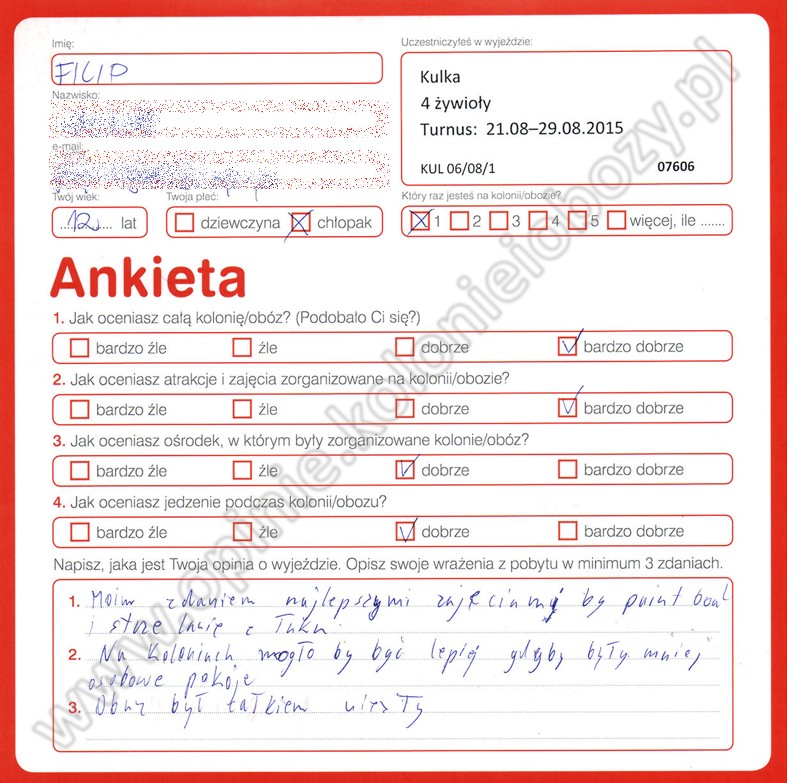 Imię:
FILIP
Uczestniczyłeś w wyjeździe:
Kulka
4 żywioły
Turnus: 21.08–29.08.2015
KUL 06/08/1 07606
Nazwisko:
e-mail:
Twój wiek: Twoja płeć:
....12.... lat dziewczyna chłopak
Który raz jesteś na kolonii/obozie?
1 2 3 4 5 więcej, ile .......
Ankieta
1. Jak oceniasz całą kolonię/obóz? (Podobało Ci się?)
bardzo źle źle dobrze bardzo dobrze
2. Jak oceniasz atrakcje i zajęcia zorganizowane na kolonii/obozie?
bardzo źle źle dobrze bardzo dobrze
3. Jak oceniasz ośrodek, w którym były zorganizowane kolonie/obóz?
bardzo źle źle dobrze bardzo dobrze
4. Jak oceniasz jedzenie podczas kolonii/obozu?
bardzo źle źle dobrze bardzo dobrze
Napisz, jaka jest Twoja opinia o wyjeździe. Opisz swoje wrażenia z pobytu w minimum 3 zdaniach.
1. Moim zdaniem najlepszymi by paint boal
i z łuku
2. Na koloniach mogło by być lepiej gdyby były mniej
osobowe pokoje
3. Obuz był całkiem niezły
www.opinie.kolonieiobozy.pl